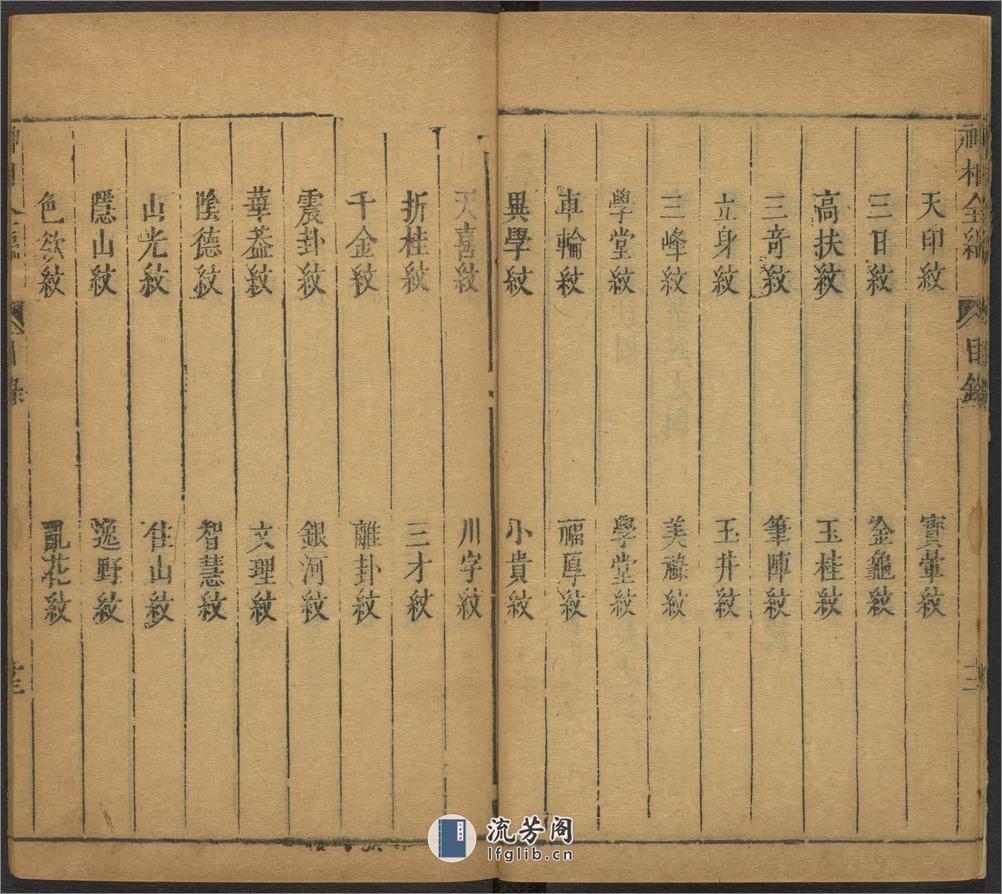 神相全編 目錄 十二
天印紋 寶暈紋
三日紋 金龜紋
高扶紋 玉桂紋
三奇紋 筆陣紋
立身紋 玉井紋
三峰紋 美祿紋
學堂紋 學堂紋
車輪紋 福厚紋
異學紋 小貴紋
天喜紋 川字紋
折桂紋 三才紋
千金紋 離卦紋
震卦紋 銀河紋
華葢紋 文理紋
陰德紋 智慧紋
山光紋 住山紋
隱山紋 逸野紋
色欲紋 亂花紋
目錄
流芳阁
lfglib.cn